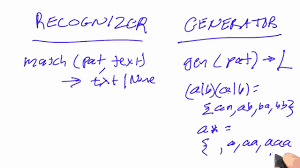 RECOGNIZER
match (pat, text)
→ text | None
GENERATOR
gen (pat) → L
(a|b)(a|b) =
{aa, ab, ba, bb}
a* =
{ , a, aa, aaa